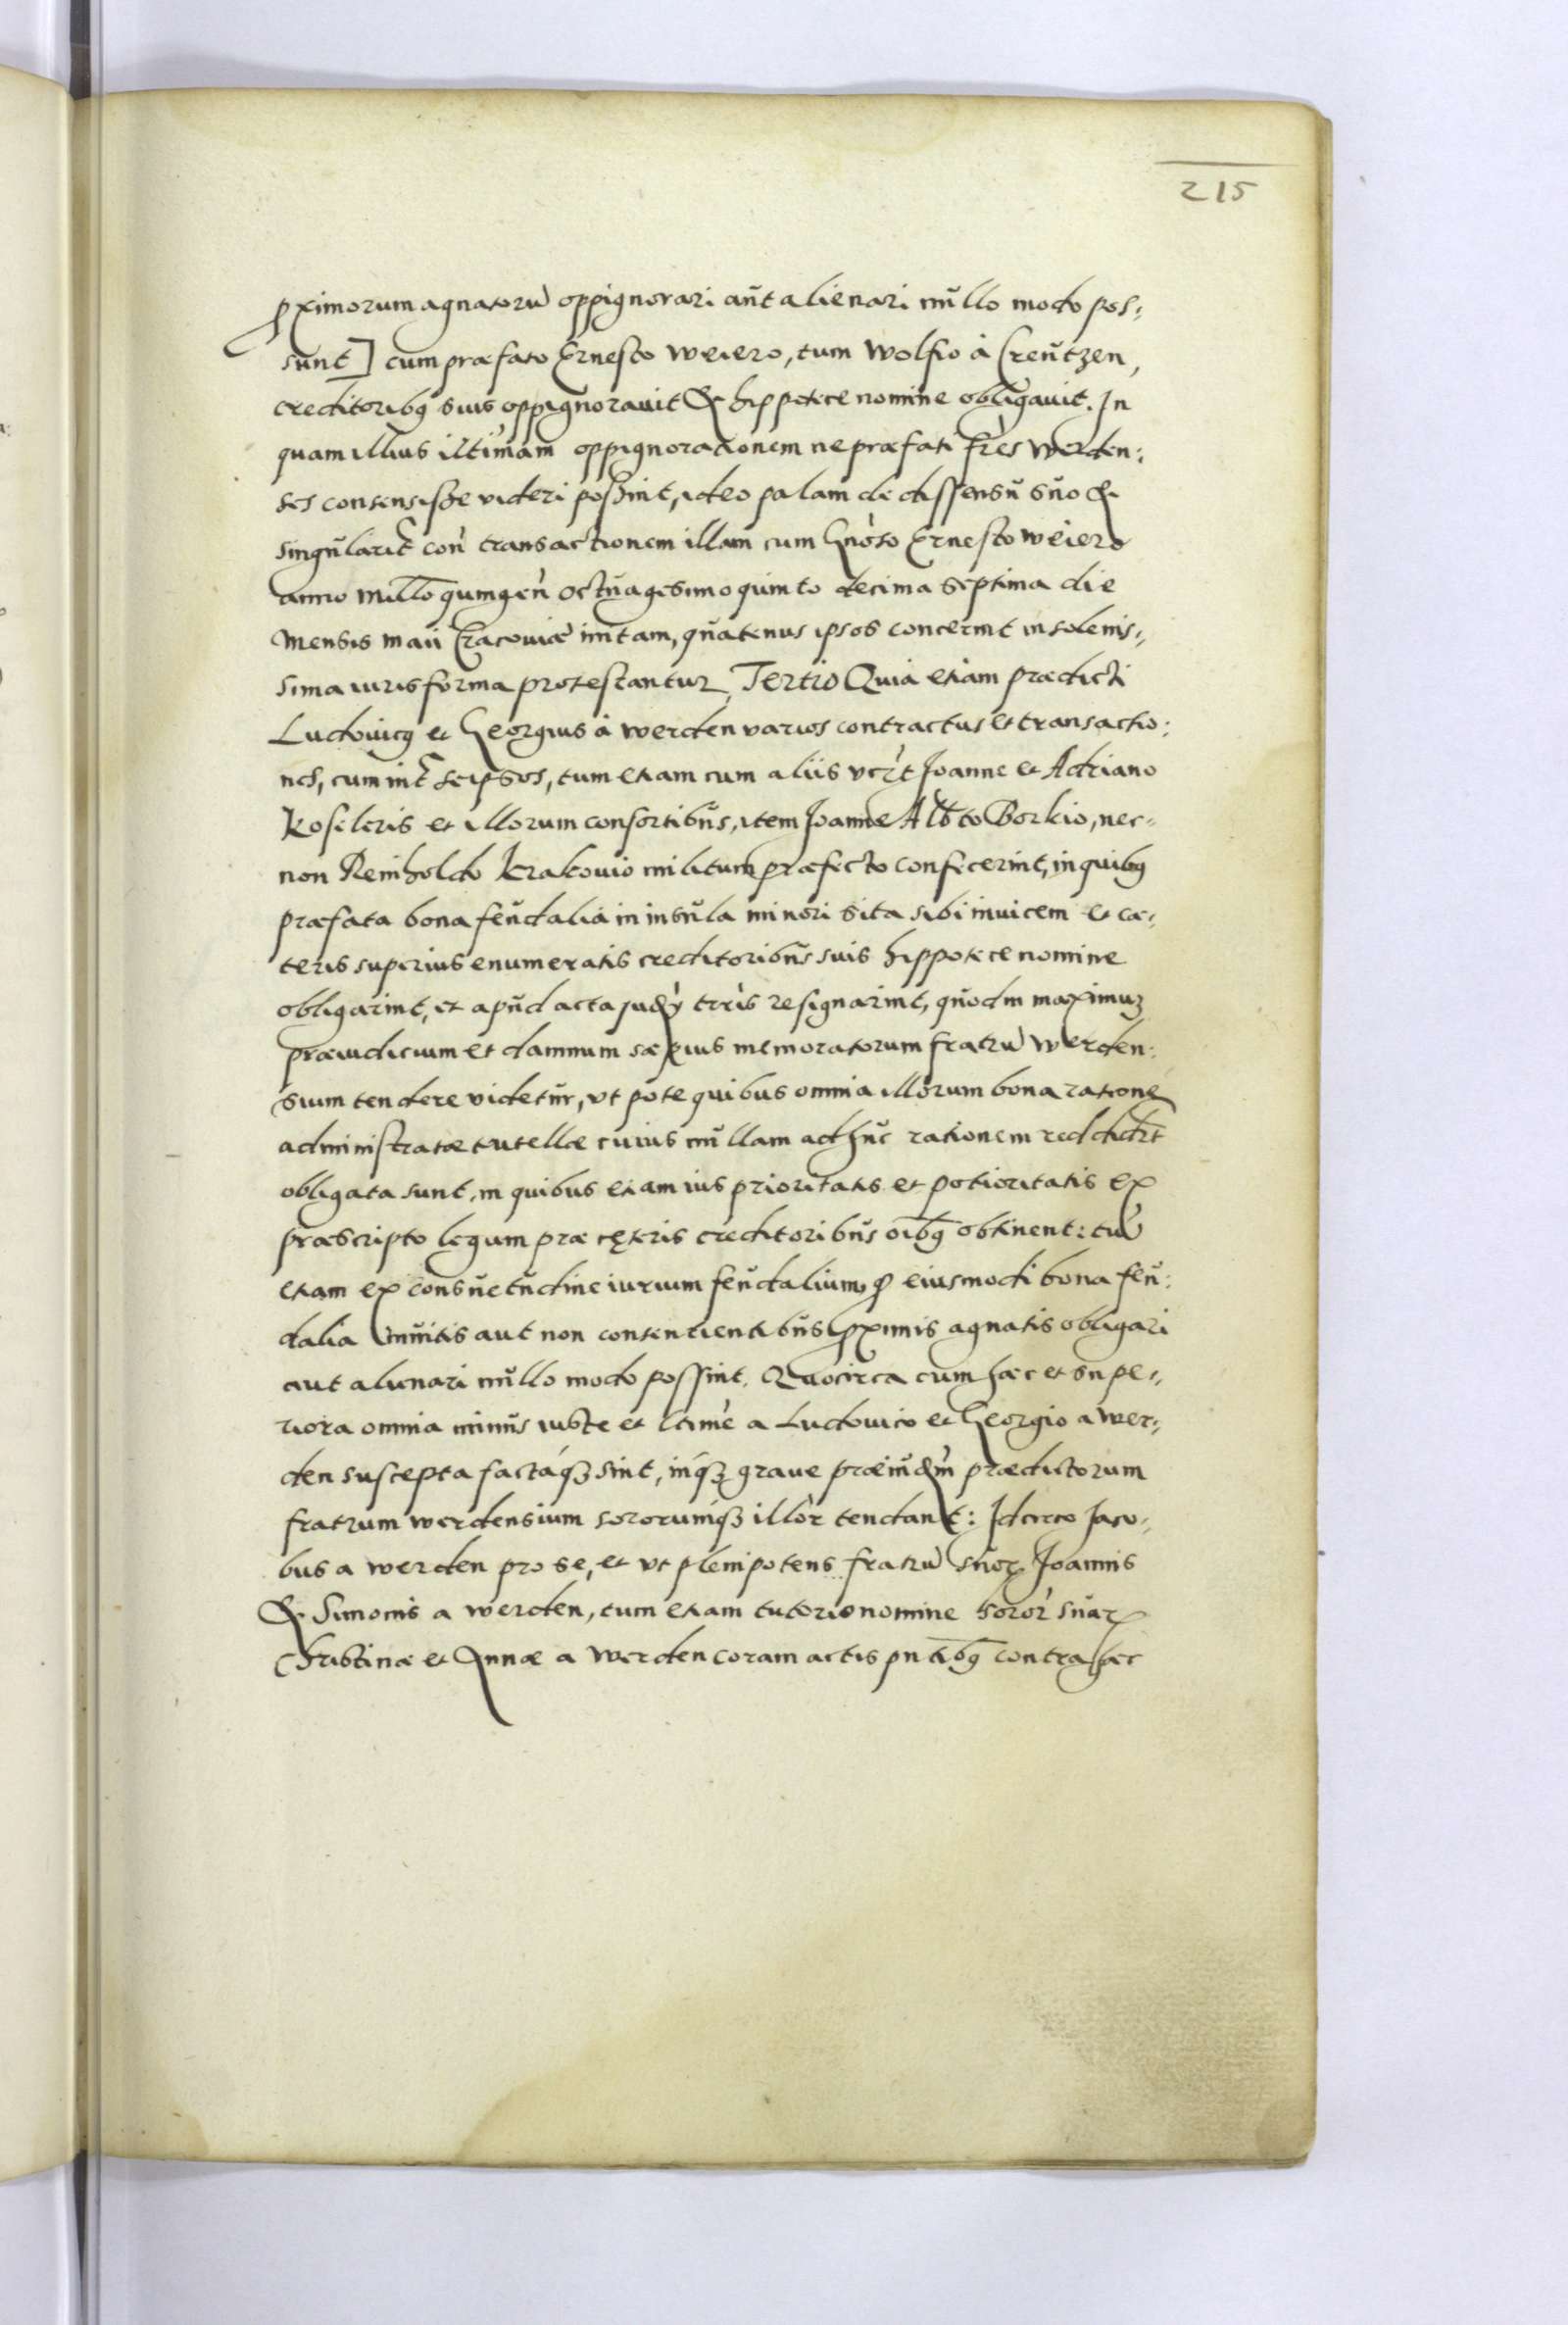 215
pximorum agnatorũ oppignorari aut alienari nullo modo pos-
sunt] cum præfato Ernesto Weiero, tum Wolfio à Creutzen,
creditoribq suis oppignorauit & hippotece nomine obligauit. In
quam illius iltimam oppignorationem ne præfati fres Werden-
ses consensisse videri possint, ideo palam de dissensu suo &
singularit con transactionem illam cum Gnoso Ernesto Weiero
anno Millo quingen octuagesimo quinto decima septima die
Mensis Maii Cracouiæ initam, quatenus ipsos concernit in solenis-
sima iuris forma protestantur, Tertio Quia etiam prædicti
Ludouicq et Georgius à Werden varios contractus et transactio-
nes, cum int seipsos, tum etiam cum aliis vert Joanne et Adriano
Koseleris et illorum consortibus, item Joanne Albto Borkio, nec-
non Reinholdo Krakouio militum præfecto confecerint, in quibq
præfata bona feudalia in insula minori sita sibi inuicem et cæ-
teris superius enumeratis creditoribus suis hippotece nomine
obligarint, et apud acta judÿ trris resignarint, quod in maximuz
præiudicium et damnum sæpius memoratorum fratrũ Werden-
sium tendere videtur, vt pote quibus omnia illorum bona ratione
administratæ tutellæ cuius nullam adhuc rationem reddidrt
obligata sunt, in quibus etiam ius prioritatis et potioritatis ex
præscripto legum præ cęteris creditoribus oibq obtinent: tũ
etiam ex consuetudine iurium feudalium, q eiusmodi bona feu-
dalia inuitis aut non consentientibus pximis agnatis obligari
aut alienari nullo modo possint. Quocirca cum hæc et supe-
riora omnia minus iuste et ltime a Ludouico et Georgio a Wer-
den suscepta factaqȝ sint, inqȝ graue præiudm prædictorum
fratrum Werdensium sororumqȝ illor tendant: Idcirco Jaco-
bus a Werden pro se, et vt plenipotens fratrũ suoꝝ Joannis
& Simonis a Werden, tum etiam tutorio nomine soror suaꝝ
Christinæ et Annæ a Werden coram actis pntibq contra hæc